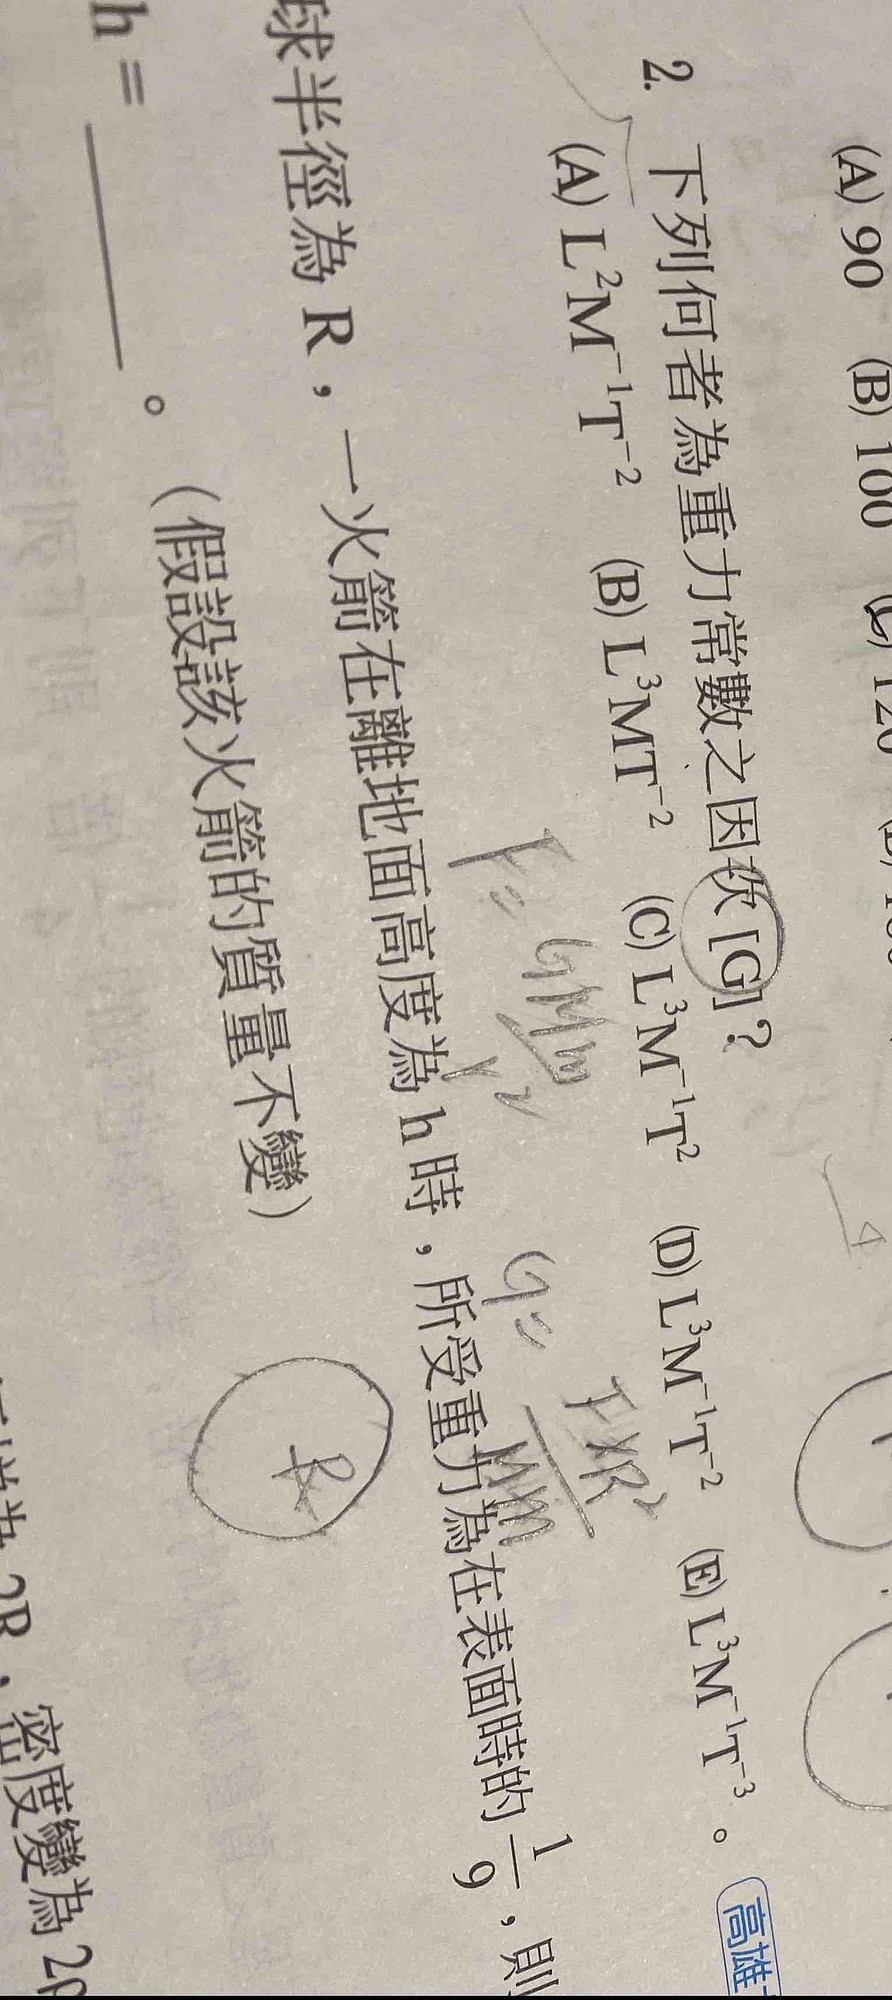 (A) 90 (B) 100 (C) 120
2. 下列何者為重力常數之因次 [G]？
(A) L²M⁻¹T⁻² (B) L³MT⁻² (C) L³M⁻¹T² (D) L³M⁻¹T⁻² (E) L³M⁻¹T⁻³。 高雄
F = GMm / r²
G = F×R² / M×m
球半徑為 R，一火箭在離地面高度為 h 時，所受重力為在表面時的 1/9，則
R
h = ＿＿＿。（假設該火箭的質量不變）
為 2R，密度變為 2ρ